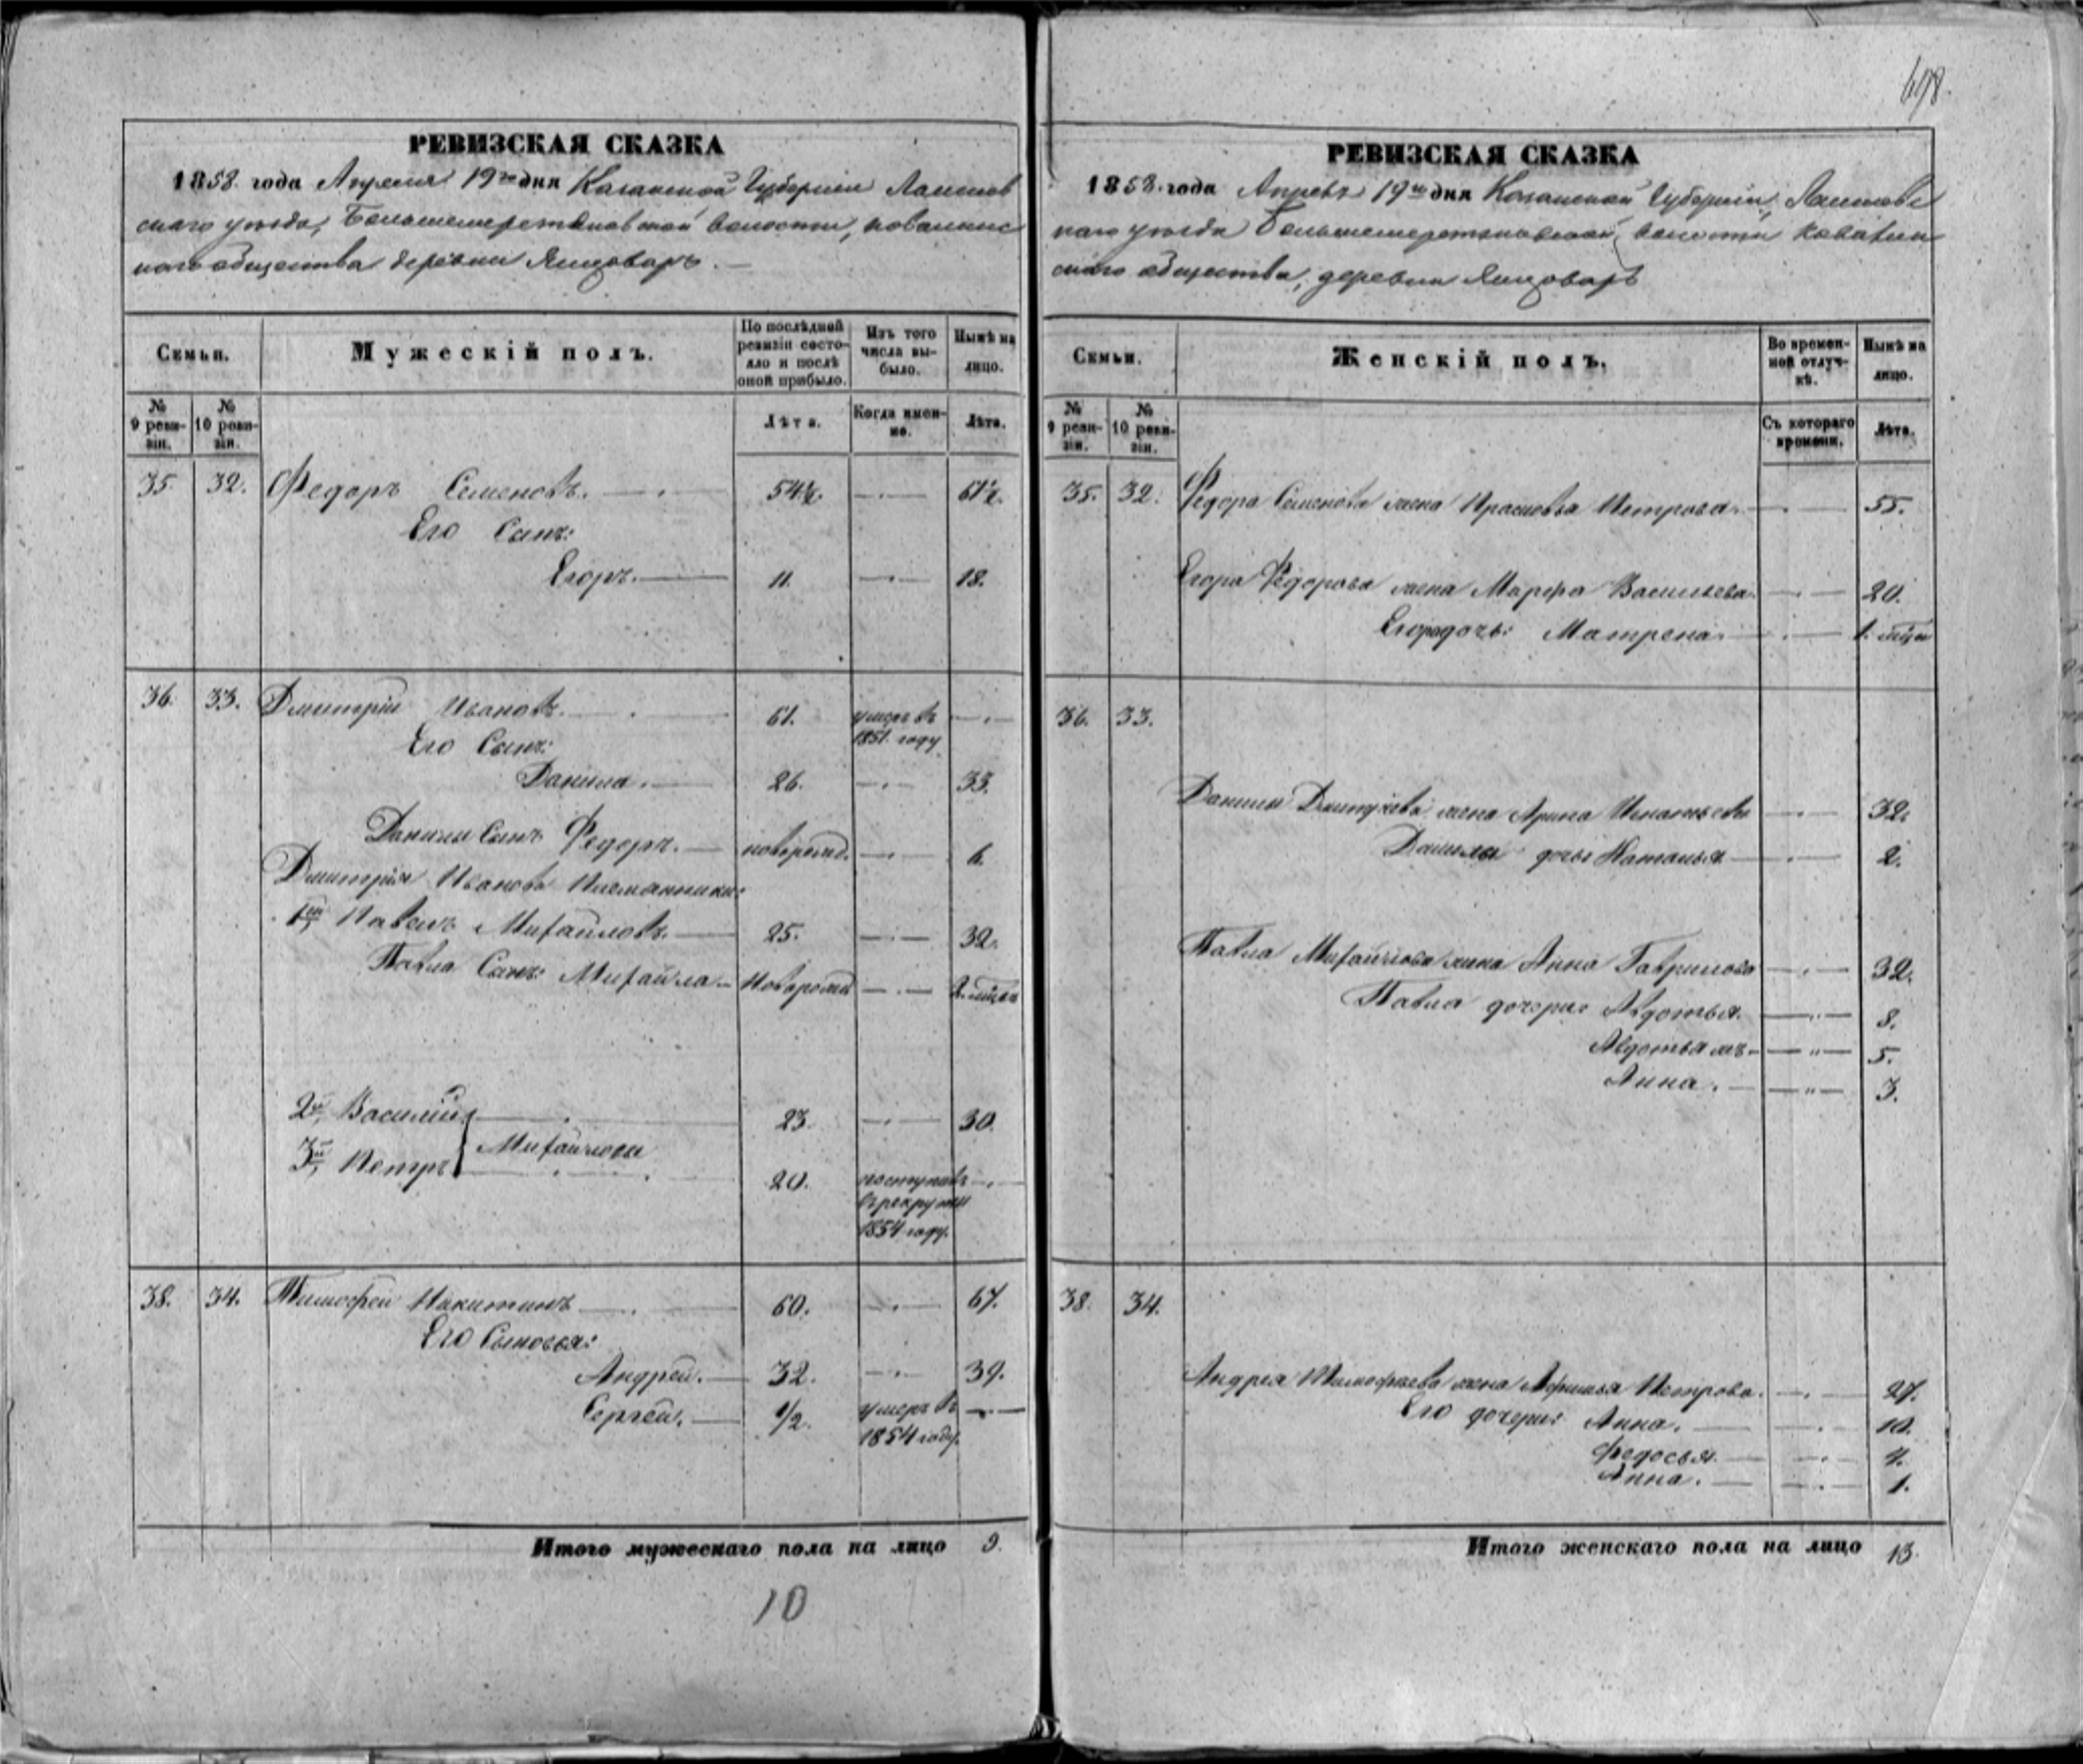 698.
РЕВИЗСКАЯ СКАЗКА
1858 года Апреля 19го дня Казанской Губернии Лаишев
скаго уезда, волости,
наго общества деревни Янцоваръ.
Семьи.
Мужескій полъ.
По послѣдней ревизіи состояло и послѣ оной прибыло.
Изъ того числа выбыло.
Нынѣ на лицо.
№ 9 ревизіи.
№ 10 ревизіи.
Лѣта.
Когда именно.
Лѣта.
35. 32. Федоръ Семеновъ. 54½. 61½.
Его Сынъ:
Егоръ. 11. 18.
36. 33. Дмитрій Ивановъ. 61. умеръ въ 1851 году
Его Сынъ:
Данила. 26. 33.
Данилы Сынъ Федоръ. новорожд. 6.
Дмитрія Иванова племянники:
1й Павелъ Михайловъ. 25. 32.
Павла Сынъ: Михайла новорожд
2й Василій 23. 30.
3й Петръ Михайловы 20. поступилъ въ рекруты 1854 году.
38. 34. Тимофей Никитинъ 60. 67.
Его Сыновья:
Андрей. 32. 39.
Сергей. 1/2. умеръ въ 1854 году.
Итого мужескаго пола на лицо 9.
10
РЕВИЗСКАЯ СКАЗКА
1858 года 19го дня Казанской Губерніи, Лаишевс
каго уезда волости
скаго общества, деревни Янцоваръ
Семьи.
Женскій полъ.
Во временной отлучкѣ.
Нынѣ на лицо.
№ 9 ревизіи.
№ 10 ревизіи.
Съ котораго времени.
Лѣта.
35. 32. Федора Семенова жена Прасковья Петрова. 55.
Егора Федорова жена Марфа Васильева. 20.
Егора дочь: Матрена.
36. 33.
Данилы Дмитріева жена Арина Игнатьева 32.
Данилы дочь Наталья 2.
Павла Михайлова жена Анна Гаврилова 32.
Павла дочери: Авдотья. 8.
Авдотья 5.
Анна. 3.
38. 34.
Андрея Тимофеева жена Петрова. 27.
Его дочери: Анна. 10.
Федосья. 4.
Анна. 1.
Итого женскаго пола на лицо 13.